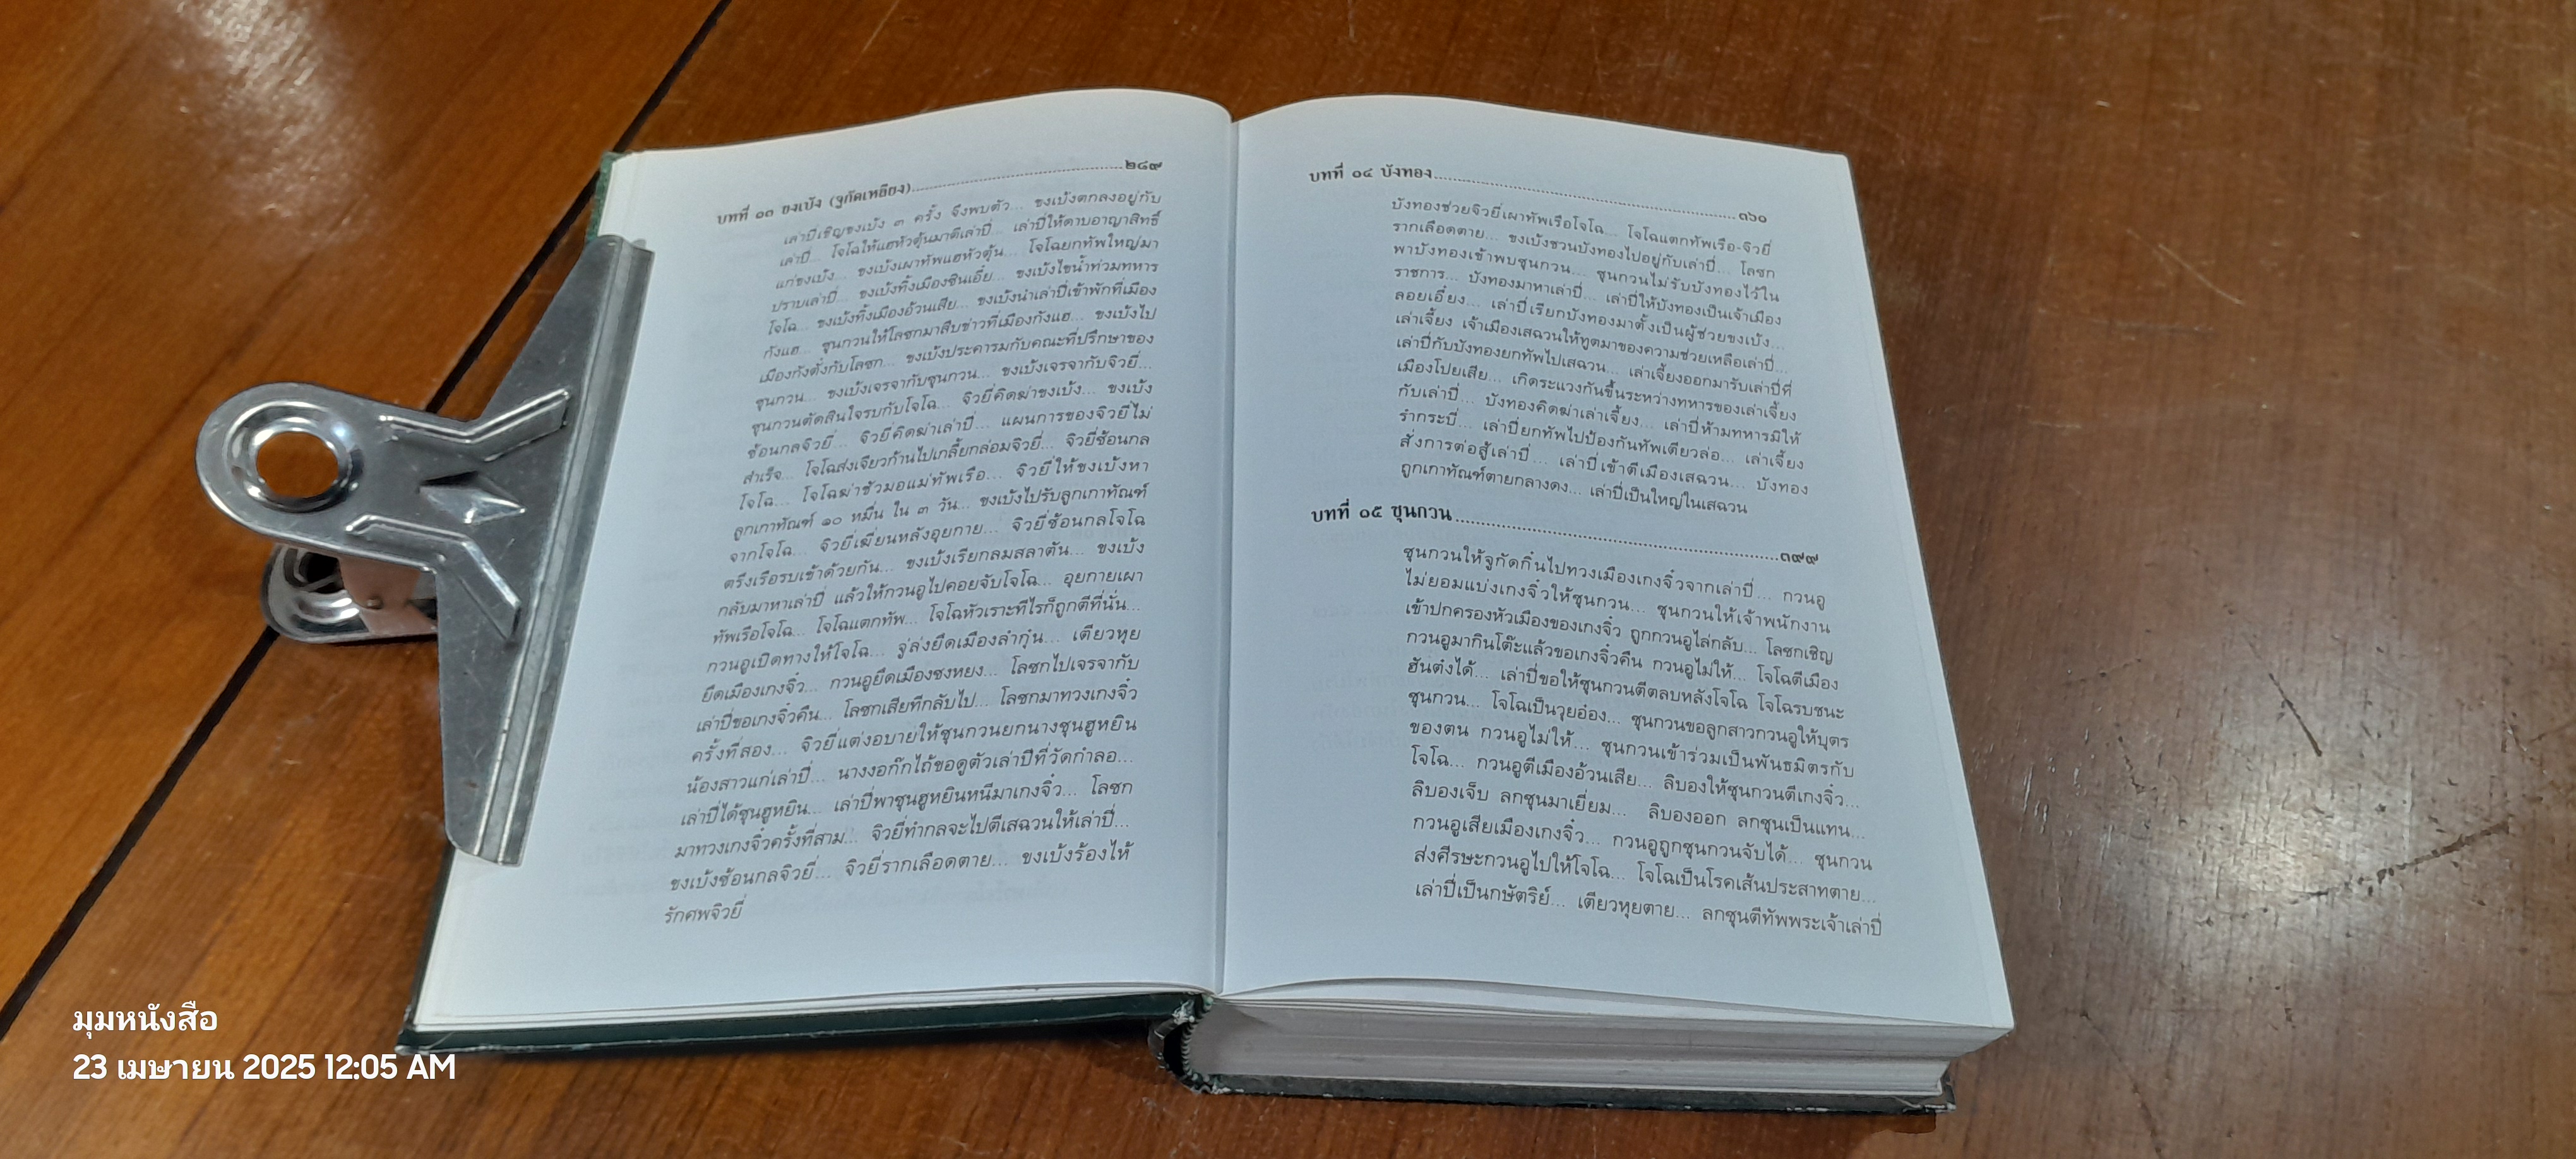 บทที่ ๑๓ ขงเบ้ง (จูกัดเหลียง)................................๒๘๙
เล่าปี่เชิญขงเบ้ง ๓ ครั้ง จึงพบตัว... ขงเบ้งตกลงอยู่กับ
เล่าปี่... โจโฉให้แฮหัวตุ้นมาตีเล่าปี่... เล่าปี่ให้ดาบอาญาสิทธิ์
แก่ขงเบ้ง... ขงเบ้งเผาทัพแฮหัวตุ้น... โจโฉยกทัพใหญ่มา
ปราบเล่าปี่... ขงเบ้งทิ้งเมืองซินเอี๋ย... ขงเบ้งไขน้ำท่วมทหาร
โจโฉ... ขงเบ้งทิ้งเมืองอ้วนเสีย... ขงเบ้งนำเล่าปี่เข้าพักที่เมือง
กังแฮ... ซุนกวนให้โลซกมาสืบข่าวที่เมืองกังแฮ... ขงเบ้งไป
เมืองกังตั๋งกับโลซก... ขงเบ้งประคารมกับคณะที่ปรึกษาของ
ซุนกวน... ขงเบ้งเจรจากับซุนกวน... ขงเบ้งเจรจากับจิวยี่...
ซุนกวนตัดสินใจรบกับโจโฉ... จิวยี่คิดฆ่าขงเบ้ง... ขงเบ้ง
ซ้อนกลจิวยี่... จิวยี่คิดฆ่าเล่าปี่... แผนการของจิวยี่ไม่
สำเร็จ... โจโฉส่งเจียวก้านไปเกลี้ยกล่อมจิวยี่... จิวยี่ซ้อนกล
โจโฉ... โจโฉฆ่าชัวมอแม่ทัพเรือ... จิวยี่ให้ขงเบ้งหา
ลูกเกาทัณฑ์ ๑๐ หมื่น ใน ๓ วัน... ขงเบ้งไปรับลูกเกาทัณฑ์
จากโจโฉ... จิวยี่เฆี่ยนหลังอุยกาย... จิวยี่ซ้อนกลโจโฉ
ตรึงเรือรบเข้าด้วยกัน... ขงเบ้งเรียกลมสลาตัน... ขงเบ้ง
กลับมาหาเล่าปี่ แล้วให้กวนอูไปคอยจับโจโฉ... อุยกายเผา
ทัพเรือโจโฉ... โจโฉแตกทัพ... โจโฉหัวเราะทีไรก็ถูกตีที่นั่น...
กวนอูเปิดทางให้โจโฉ... จูล่งยึดเมืองลำกุ๋น... เตียวหุย
ยึดเมืองเกงจิ๋ว... กวนอูยึดเมืองซงหยง... โลซกไปเจรจากับ
เล่าปี่ขอเกงจิ๋วคืน... โลซกเสียทีกลับไป... โลซกมาทวงเกงจิ๋ว
ครั้งที่สอง... จิวยี่แต่งอบายให้ซุนกวนยกนางซุนฮูหยิน
น้องสาวแก่เล่าปี่... นางงอก๊กไถ้ขอดูตัวเล่าปีที่วัดกำลอ...
เล่าปี่ได้ซุนฮูหยิน... เล่าปี่พาซุนฮูหยินหนีมาเกงจิ๋ว... โลซก
มาทวงเกงจิ๋วครั้งที่สาม... จิวยี่ทำกลจะไปตีเสฉวนให้เล่าปี่...
ขงเบ้งซ้อนกลจิวยี่... จิวยี่รากเลือดตาย... ขงเบ้งร้องไห้
รักศพจิวยี่
บทที่ ๑๔ บังทอง................................๓๖๐
บังทองช่วยจิวยี่เผาทัพเรือโจโฉ... โจโฉแตกทัพเรือ-จิวยี่
รากเลือดตาย... ขงเบ้งชวนบังทองไปอยู่กับเล่าปี่... โลซก
พาบังทองเข้าพบซุนกวน... ซุนกวนไม่รับบังทองไว้ใน
ราชการ... บังทองมาหาเล่าปี่... เล่าปี่ให้บังทองเป็นเจ้าเมือง
ลอยเอี๋ยง... เล่าปี่เรียกบังทองมาตั้งเป็นผู้ช่วยขงเบ้ง...
เล่าเจี้ยง เจ้าเมืองเสฉวนให้ทูตมาของความช่วยเหลือเล่าปี่...
เล่าปี่กับบังทองยกทัพไปเสฉวน... เล่าเจี้ยงออกมารับเล่าปี่ที่
เมืองโปยเสีย... เกิดระแวงกันขึ้นระหว่างทหารของเล่าเจี้ยง
กับเล่าปี่... บังทองคิดฆ่าเล่าเจี้ยง... เล่าปี่ห้ามทหารมิให้
รำกระบี่... เล่าปี่ยกทัพไปป้องกันทัพเตียวล่อ... เล่าเจี้ยง
สั่งการต่อสู้เล่าปี่... เล่าปี่เข้าตีเมืองเสฉวน... บังทอง
ถูกเกาทัณฑ์ตายกลางดง... เล่าปี่เป็นใหญ่ในเสฉวน
บทที่ ๑๕ ซุนกวน................................๓๙๙
ซุนกวนให้จูกัดกิ๋นไปทวงเมืองเกงจิ๋วจากเล่าปี่... กวนอู
ไม่ยอมแบ่งเกงจิ๋วให้ซุนกวน... ซุนกวนให้เจ้าพนักงาน
เข้าปกครองหัวเมืองของเกงจิ๋ว ถูกกวนอูไล่กลับ... โลซกเชิญ
กวนอูมากินโต๊ะแล้วขอเกงจิ๋วคืน กวนอูไม่ให้... โจโฉตีเมือง
ฮันต๋งได้... เล่าปี่ขอให้ซุนกวนตีตลบหลังโจโฉ โจโฉรบชนะ
ซุนกวน... โจโฉเป็นวุยอ๋อง... ซุนกวนขอลูกสาวกวนอูให้บุตร
ของตน กวนอูไม่ให้... ซุนกวนเข้าร่วมเป็นพันธมิตรกับ
โจโฉ... กวนอูตีเมืองอ้วนเสีย... ลิบองให้ซุนกวนตีเกงจิ๋ว...
ลิบองเจ็บ ลกซุนมาเยี่ยม... ลิบองออก ลกซุนเป็นแทน...
กวนอูเสียเมืองเกงจิ๋ว... กวนอูถูกซุนกวนจับได้... ซุนกวน
ส่งศีรษะกวนอูไปให้โจโฉ... โจโฉเป็นโรคเส้นประสาทตาย...
เล่าปี่เป็นกษัตริย์... เตียวหุยตาย... ลกซุนตีทัพพระเจ้าเล่าปี่
มุมหนังสือ
23 เมษายน 2025 12:05 AM